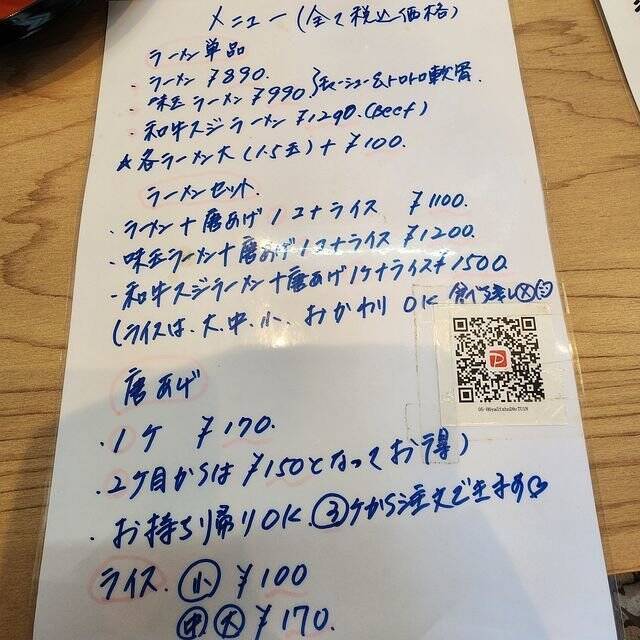 メニュー(全て税込価格)
ラーメン単品
・ラーメン ¥890.
・味玉ラーメン ¥990 }チャーシュー&トロトロ軟骨.
・和牛スジラーメン ¥1290.(Beef)
☆各ラーメン大(1.5玉)+¥100.
ラーメンセット.
・ラーメン+唐あげ1コ+ライス ¥1100.
・味玉ラーメン+唐あげ1コ+ライス ¥1200.
・和牛スジラーメン+唐あげ1ケ+ライス¥1500.
(ライスは、大、中、小、おかわりOK
唐あげ
・1ケ ¥170.
・2ケ目からは¥150となってお得)
・お持ち帰りOK.③ケから注文できます
ライス.小 ¥100
中大 ¥170.